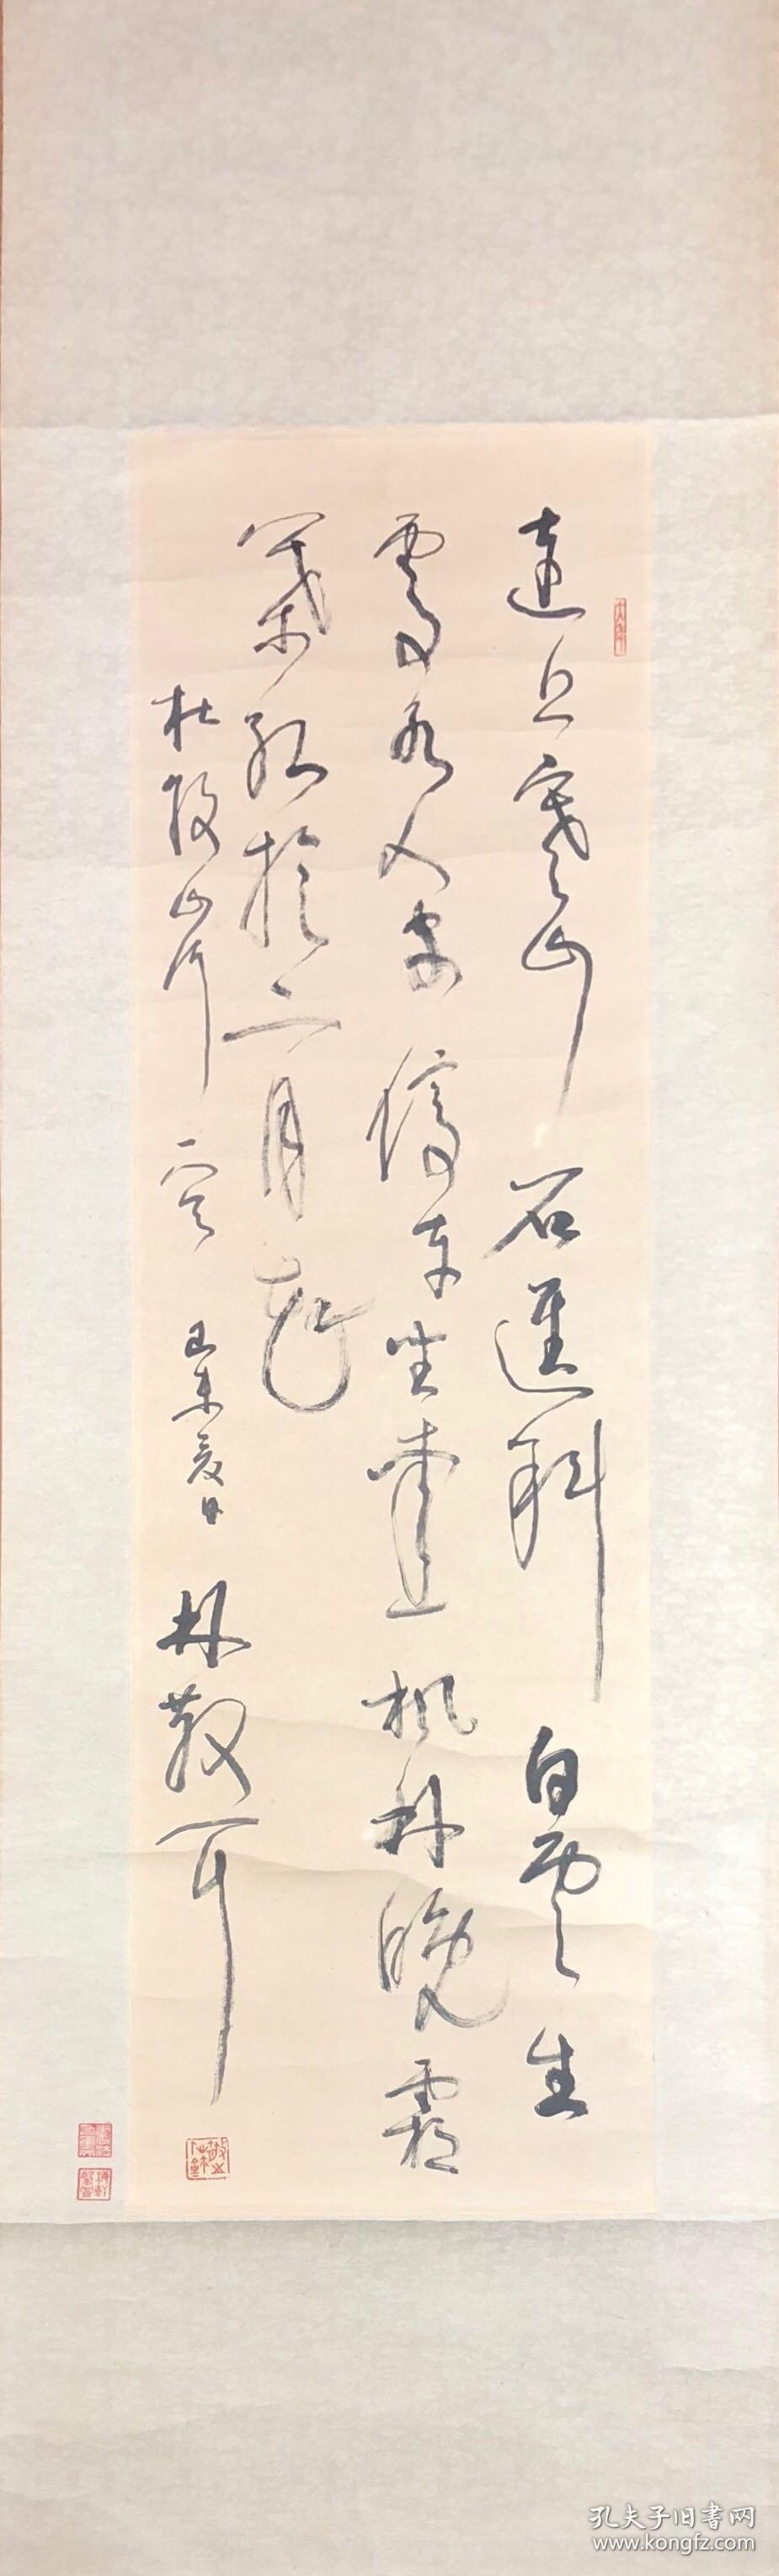 遠上寒山石徑斜白雲生
處有人家停車坐愛楓林晚霜
葉紅於二月花
杜牧山行一首辛未夏日林散耳
孔夫子旧書网
www.kongfz.com